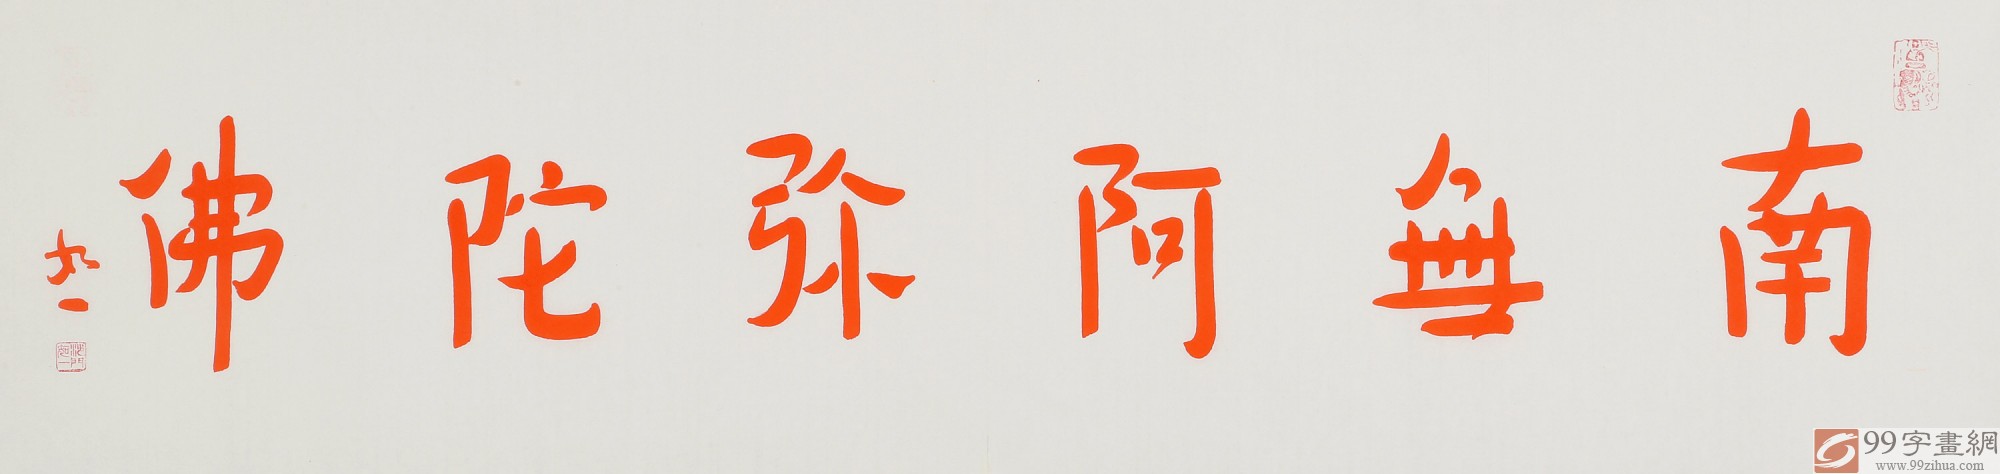 南無阿弥陀佛
99字畫網
www.99zihua.com